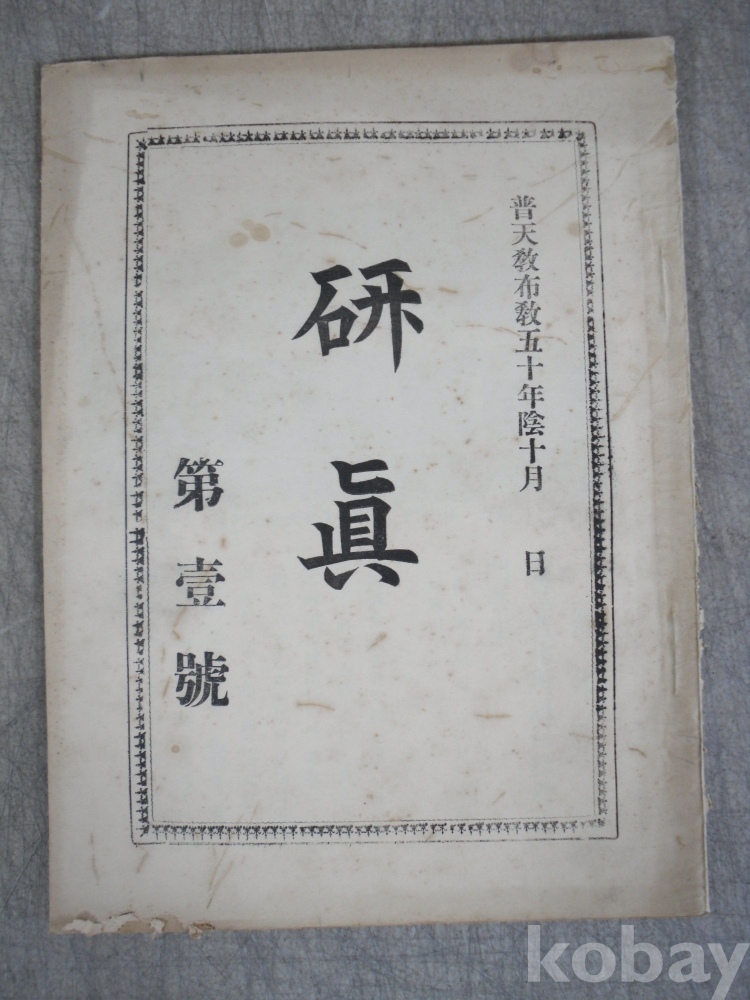 普天敎布敎五十年陰十月　日
硏眞
第壹號
kobay